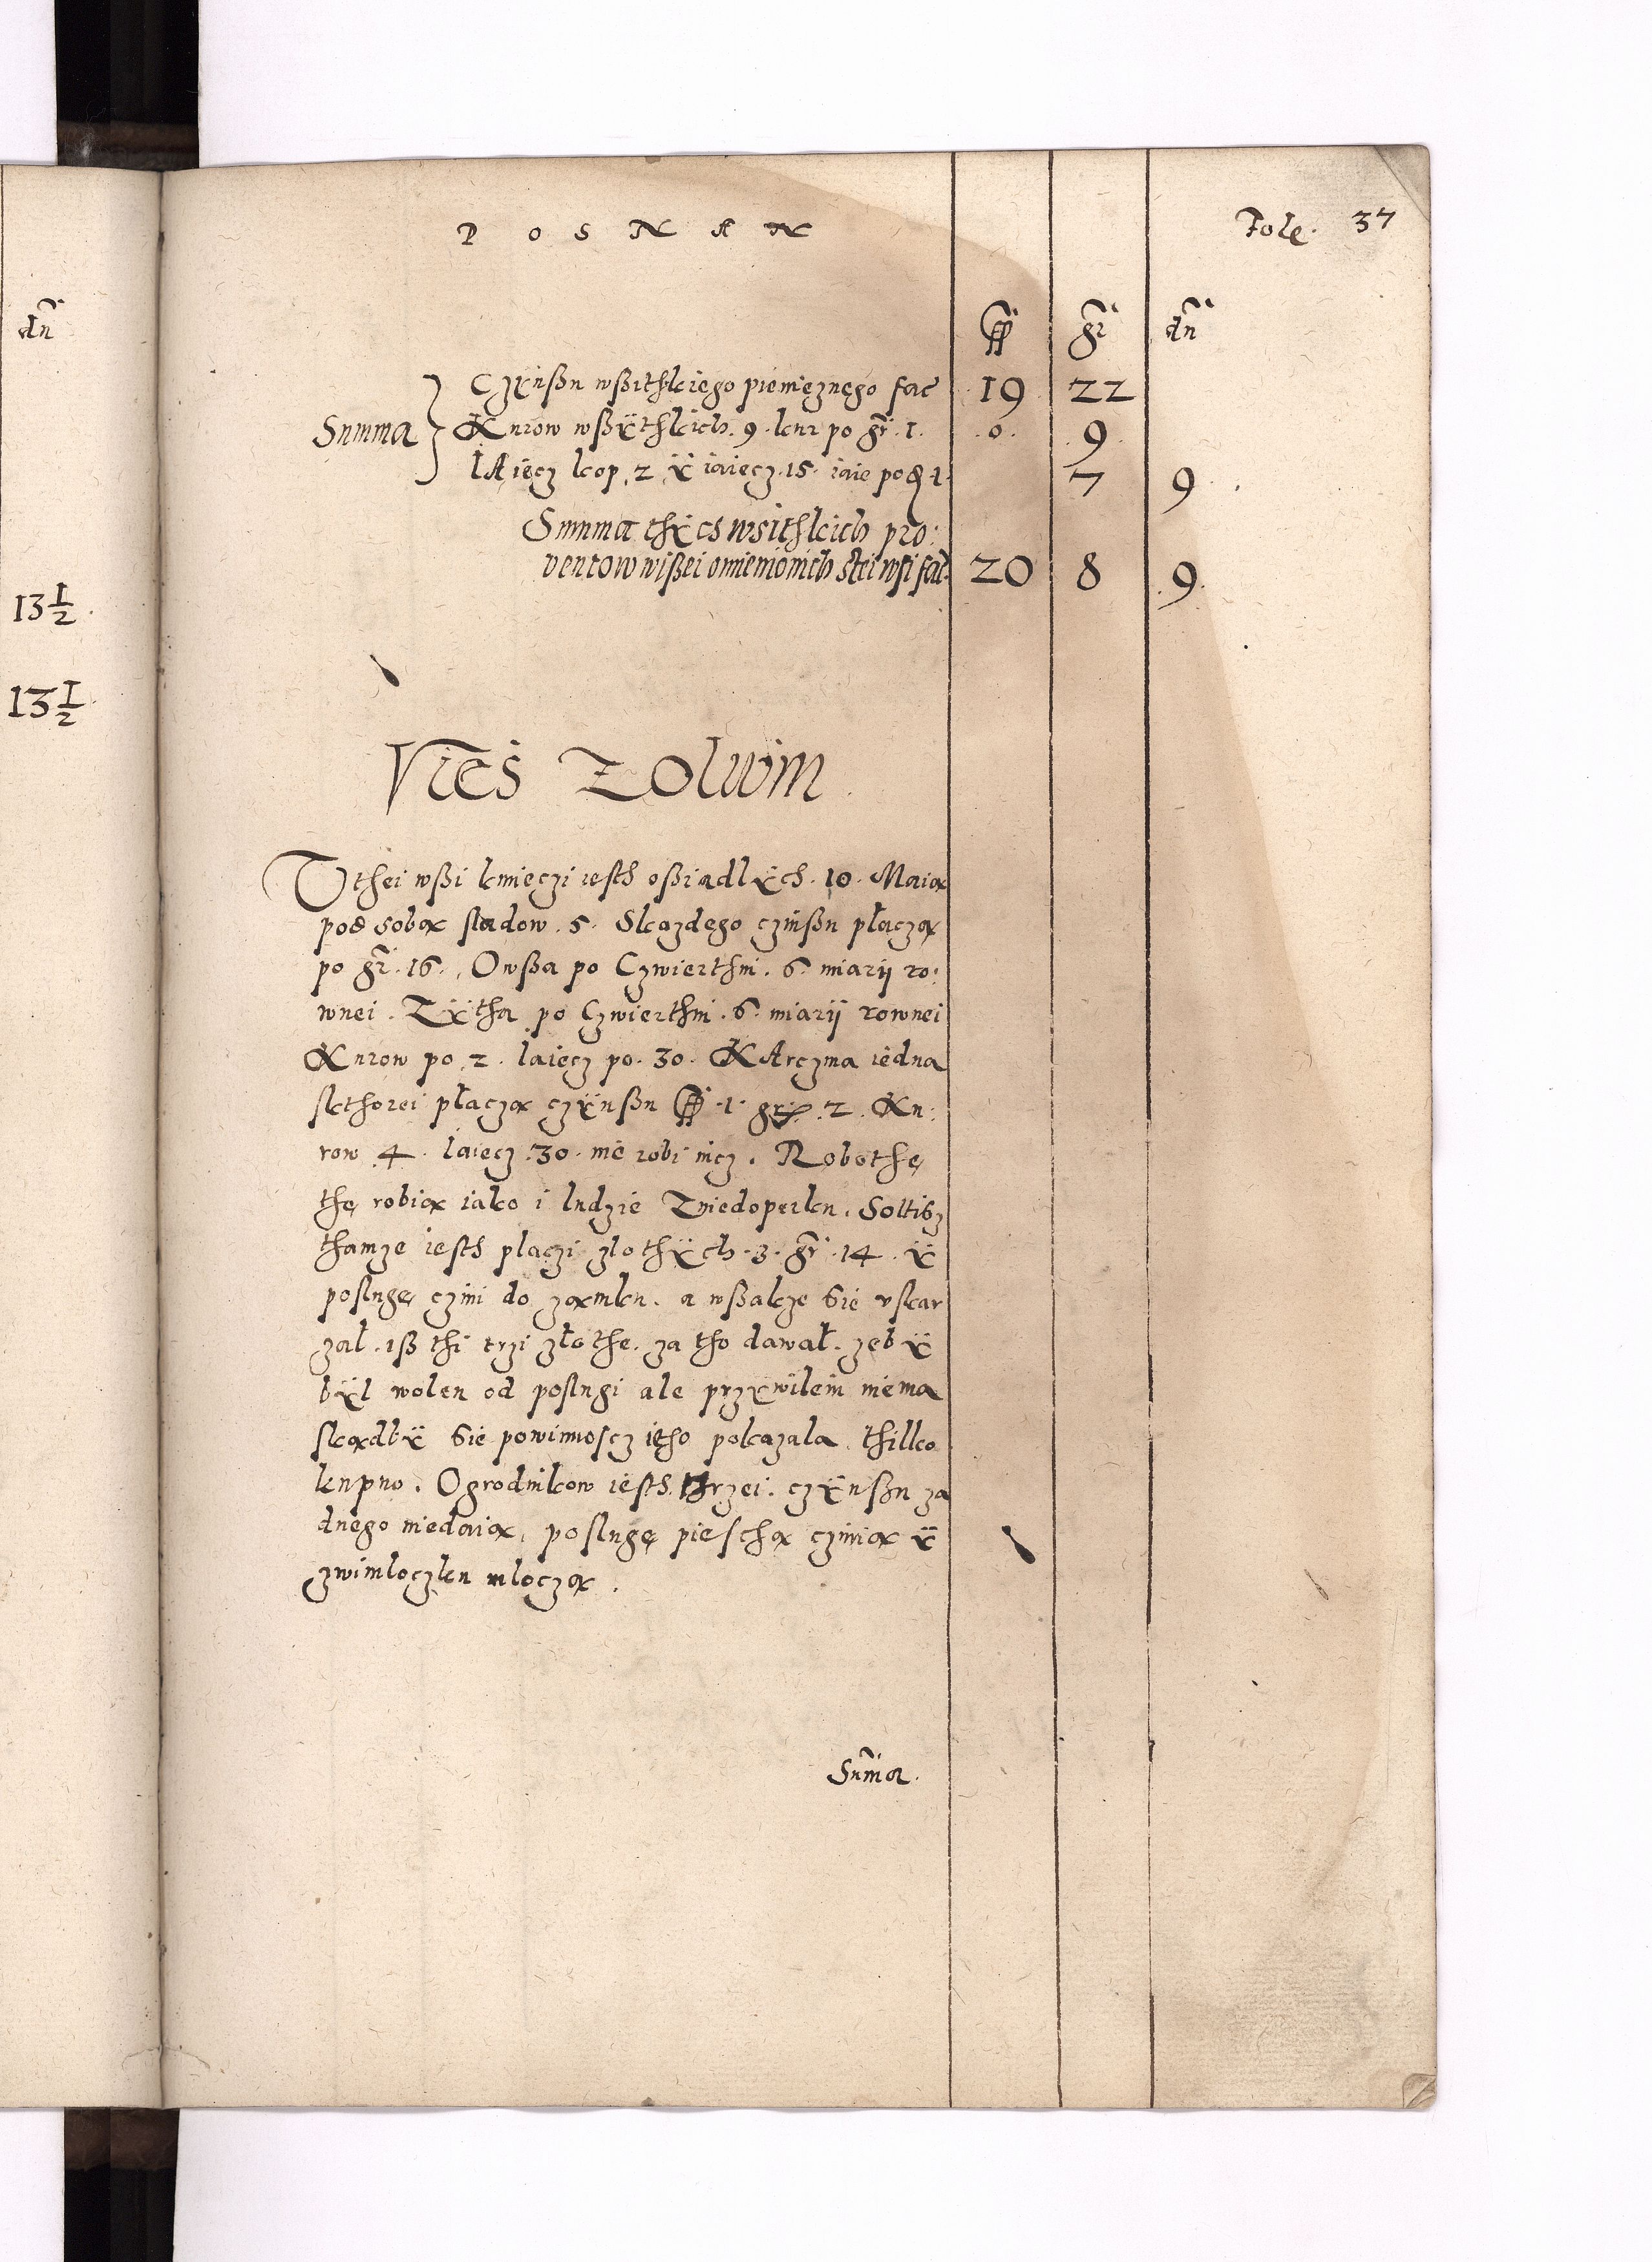 POSNAN
Folę. 37
dñ
ff gr dñ
Czÿnßu wßithkiego pienięznego fac 19 22
Summa Kurow wßÿthkich. 9. kur po gr. 1. .0. 9.
IAięcz kop. 2 ÿ iaięcz. 15. iaie po d 1. 7 9
Summa thÿch wsithkich pro:
ventow wißei omienionich stei wsi fac. 20 8 9.
13 1/2.
13 1/2.
Vies Zolwin.
W thei wßi kmieczi iesth oßiadlÿch. 10. Maią
pod sobą sladow. 5. Skazdego czinßu płaczą
po gr. 16. Owßa po Czwierthni. 6. miarij ro:
wnei. Zÿtha po Czwierthni. 6. miarij rownei
Kurow po. 2. Iaięcz po. 30. KArczma iedna
skthorei płaczą czÿnßu ff. 1. gr. 2. Ku:
row 4. Iaięcz 30. nie robi nicz. Robothę
thę robią iako i ludzie Zniedoperku. Soltisz
thamze iesth placzi zlothÿch. 3. gr. 14. ÿ
poslugę czini do zamku. a wßakze sie vskar
zal. iß thi trzi złothe. za tho dawał. zebÿ
bÿl wolen od poslugi ale przywilein niema
skądbÿ sie powinnoscz ietho pokazala. thilko
kupno. Ogrodnikow iesth thrzei. czÿnßu za
dnego niedaią, poslugę pieschą czinią ÿ
zwimloczku mloczą.
Suma.